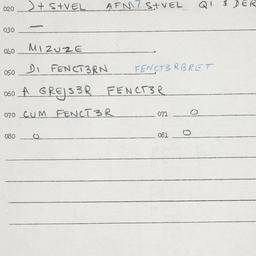 020 J+ S+VEL AFM7 S+VEL QI 3 DER
030 —
040 MIZUZE
050 DI FENCT3RN FENCT3RBRET
060 A GREJS3R FENCT3R
070 CUM FENCT3R 071 O
080 O 081 O